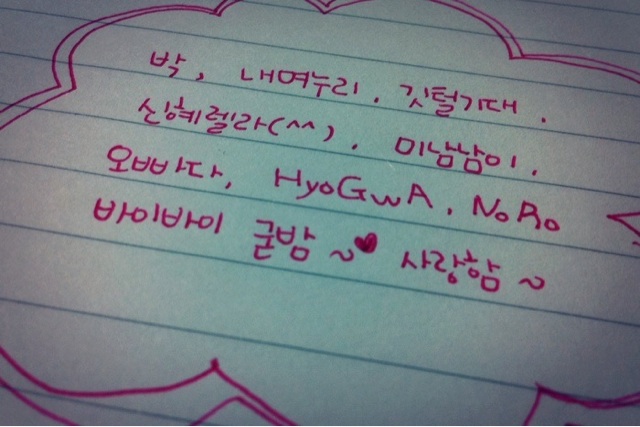 박, 내여누리. 깃털기대.
신혜렐라(^^). 미남남이.
오빠다, HyoGwA. NoRo
바이바이 굳밤~♥ 사랑함~